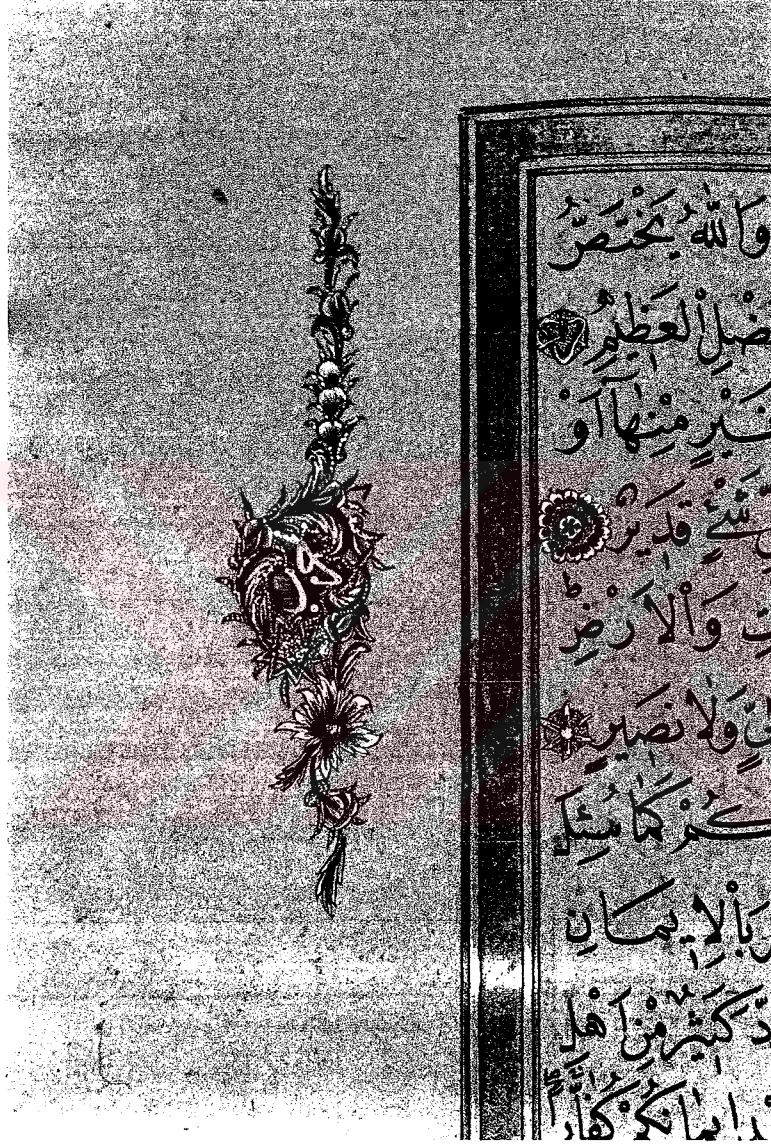 وَاللّٰهُ يَخْتَصُّ
ضْلِ الْعَظِيمِ
خَيْرٍ مِنْهَآ اَوْ
شَىْءٍ قَدِيرٌ
تِ وَالْاَرْضِ
وَلَا نَصِيرٍ
كُمْ كَمَا سُئِلَ
بِالْا۪يمَانِ
دَّ كَثِيرٌ مِنْ اَهْلِ
دِ ا۪يمَانِكُمْ كُفَّارًا